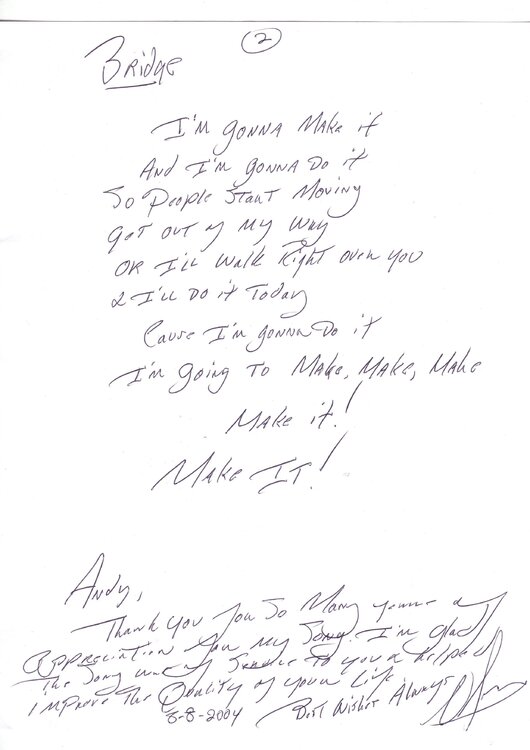 2
Bridge
I'm gonna Make it
And I'm gonna Do it
So People Start Moving
Get out of My Way
OR I'll Walk Right over you
& I'll Do it Today
Cause I'm gonna Do it
I'm going To Make, Make, Make
Make it!
Make IT!
Andy,
Thank you for So Many years of
Appreciation for My Song. I'm glad
the Song was of Service to you & helped
improve the Quality of your Life.
8-8-2004 Best Wishes Always